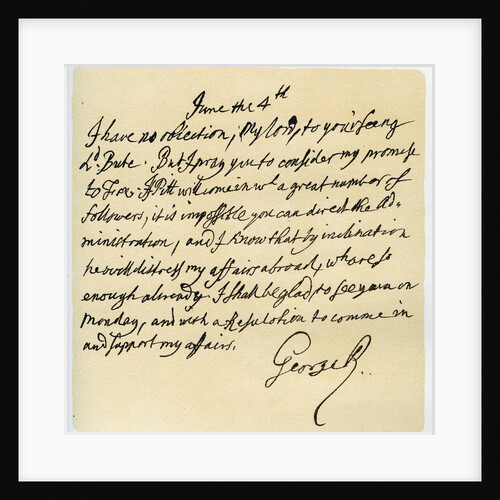 June the 4th
I have no objection, My lord, to your seeing
Ld. Bute. But I pray you to consider my promise
to Fox. If Pitt will come in wt. a great number of
followers, it is impossible you can direct the Ad-
ministration, and I know that by inclination
he will distress my affairs abroad, wh are so
enough already. I shall be glad to see you on
Monday, and with a Resolution to comme in
and support my affairs.
George R.